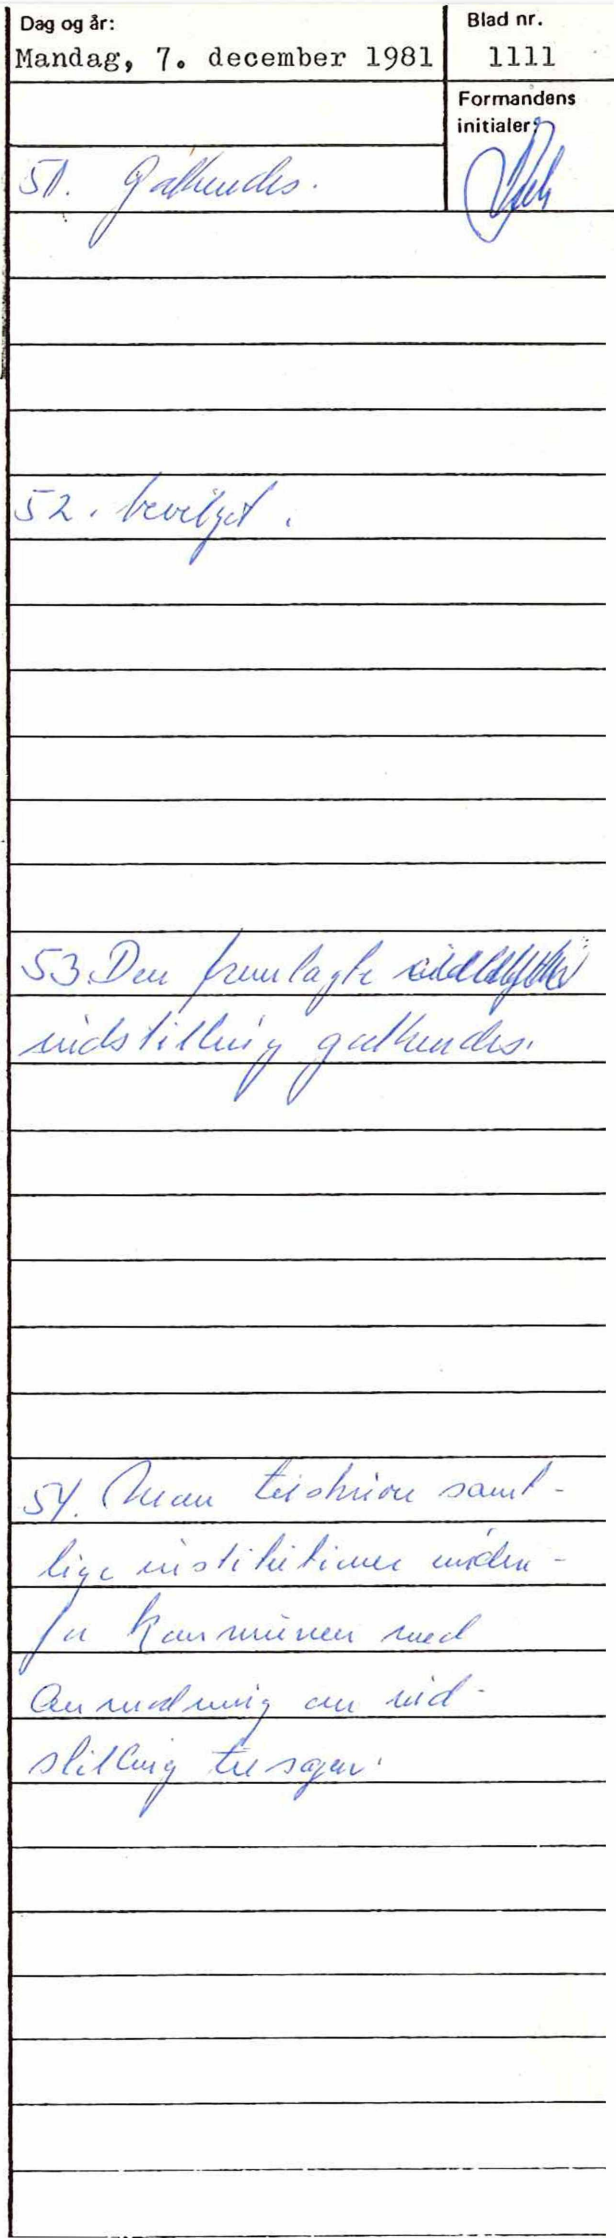 Dag og år:
Mandag, 7. december 1981
Blad nr.
1111
Formandens
initialer:
51. Godkendes.
52. bevilget.
53. Den fremlagte
indstilling godkendes.
54. Man tilskriver samt-
lige institutioner inden-
for kommunen med
anmodning om ind-
stilling til sagen.